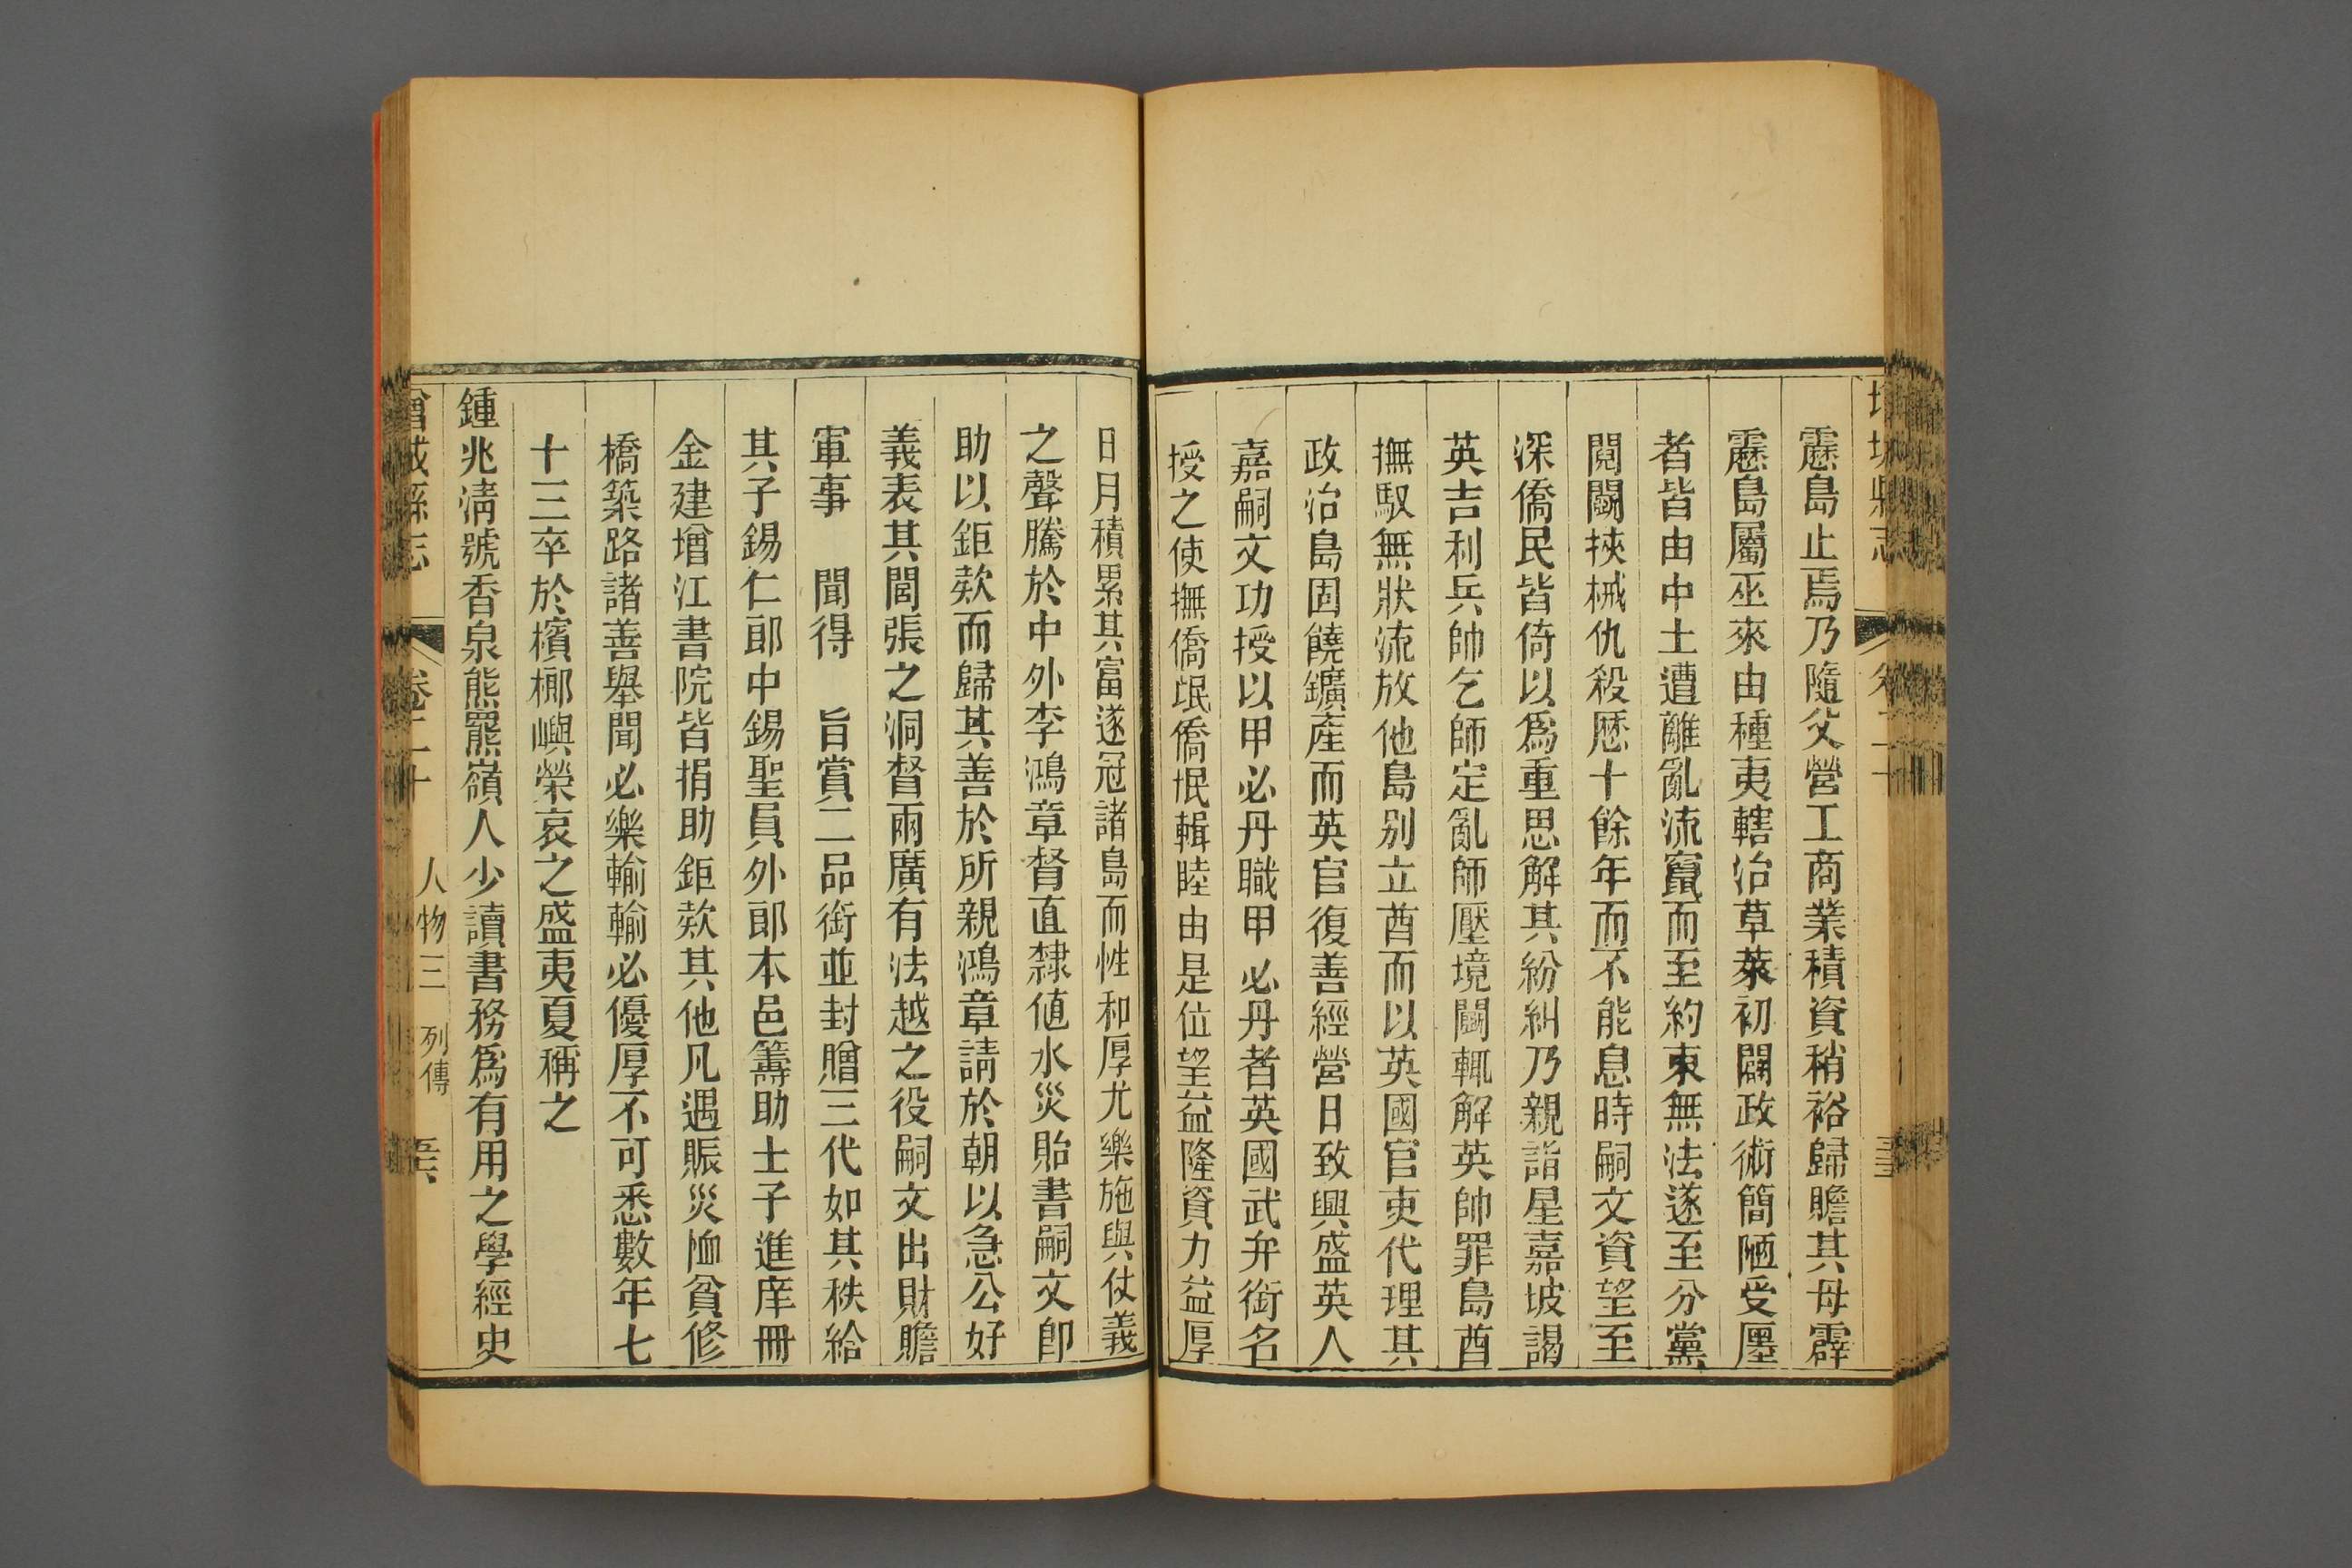 靂島止焉乃隨父營工商業積資稍裕歸贍其母霹
靂島屬巫來由種夷轄治草萊初闢政術簡陋受廛
者皆由中土遭離亂流竄而至約束無法遂至分黨
鬩鬬挾械仇殺歷十餘年而不能息時嗣文資望至
深僑民皆倚以爲重思解其紛糾乃親詣星嘉坡謁
英吉利兵帥乞師定亂師壓境鬬輒解英帥罪島酋
撫馭無狀流放他島别立酋而以英國官吏代理其
政治島固饒鑛產而英官復善經營日致興盛英人
嘉嗣文功授以甲必丹職甲必丹者英國武弁銜名
授之使撫僑氓僑氓輯睦由是位望益隆資力益厚
日月積累其富遂冠諸島而性和厚尤樂施與仗義
之聲騰於中外李鴻章督直隸値水災貽書嗣文卽
助以鉅欵而歸其善於所親鴻章請於朝以急公好
義表其閭張之洞督兩廣有法越之役嗣文出財贍
軍事　聞得　旨賞二品銜並封贈三代如其秩給
其子錫仁郎中錫聖員外郎本邑籌助士子進庠冊
金建增江書院皆捐助鉅欵其他凡遇賑災恤貧修
橋築路諸善舉聞必樂輸輸必優厚不可悉數年七
十三卒於檳榔嶼榮哀之盛夷夏稱之
鍾兆淸號香泉熊羆嶺人少讀書務爲有用之學經史
增城縣志　卷二十　人物三　列傳